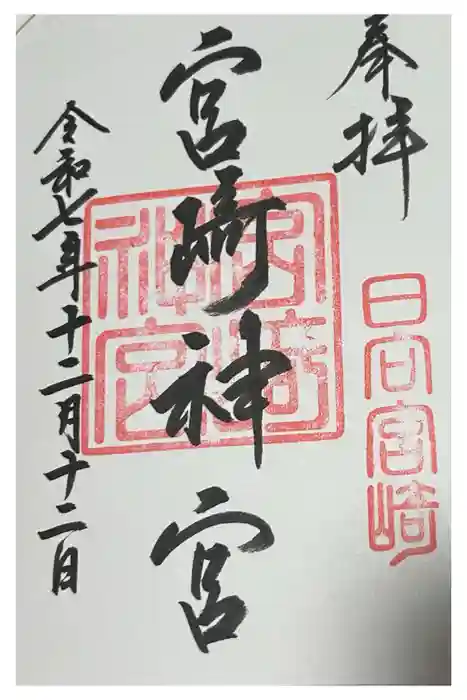 奉拝
日向宮崎
宮崎神宮
宮崎
神宮
令和七年十二月十二日